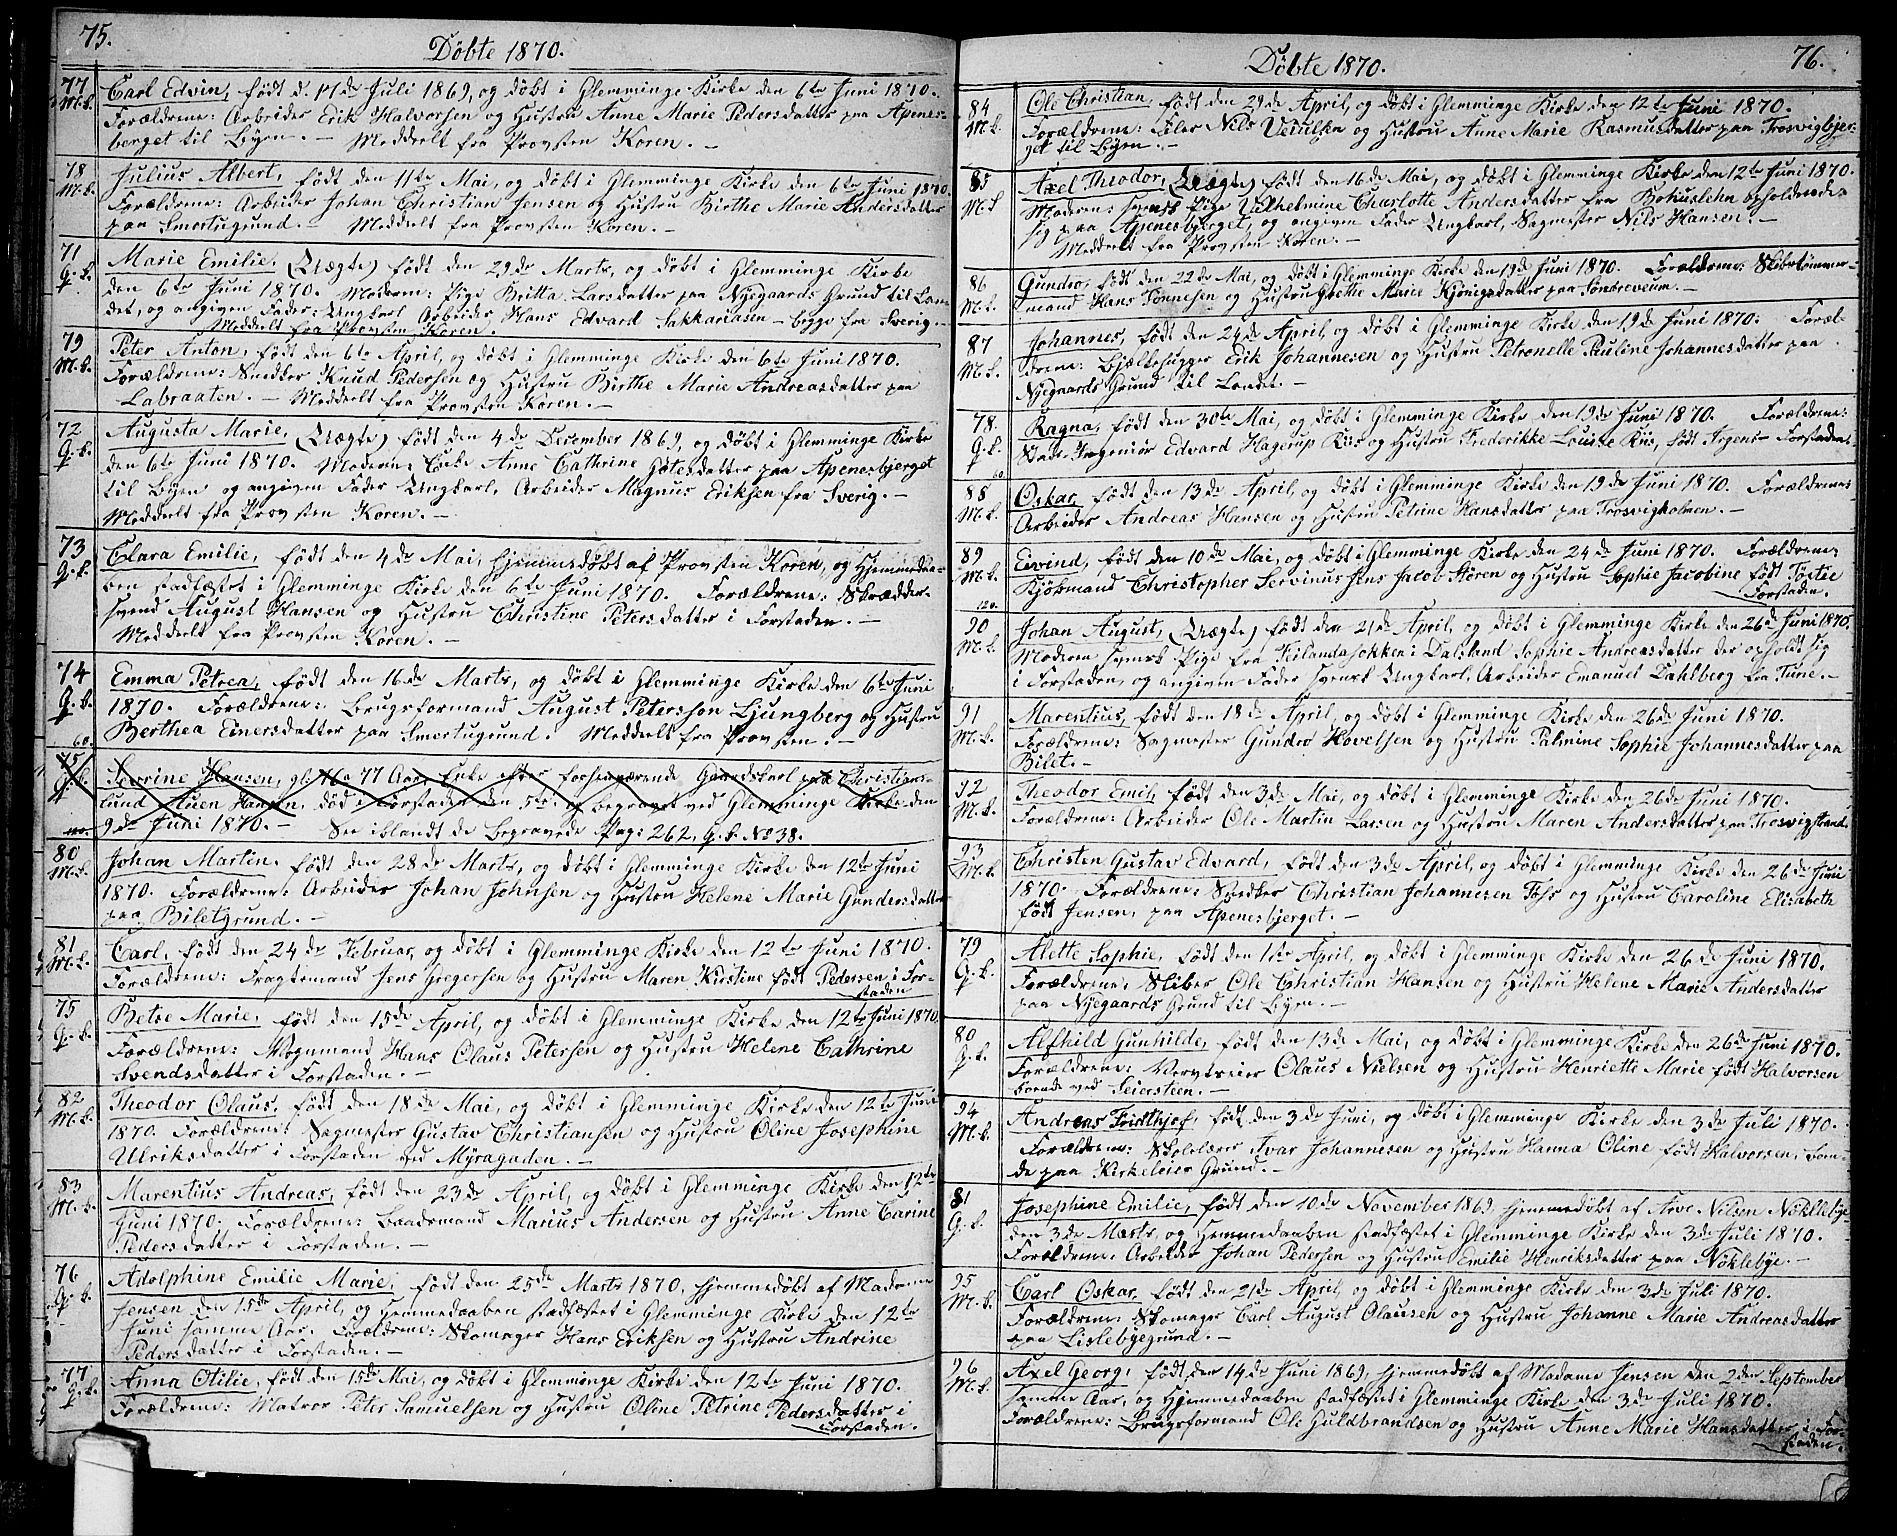 75.
Döbte 1870.
77 M.k. Carl Edvin, födt d. 17de Juli 1869, og döbt i Glemminge Kirke den 6te Juni 1870.
Forældrene: Arbeider Erik Halvorsen og Hustru Anne Marie Pedersdatter paa Apenes-
berget til Byen. — Meddelt fra Provsten Koren. —
78 M.k. Julius Albert, födt den 11te Mai, og döbt i Glemminge Kirke den 6te Juni 1870.
Forældrene: Arbeider Johan Christian Jensen og Hustru Birthe Marie Andersdatter
paa Smertugrund. — Meddelt fra Provsten Koren. —
71 Q.k. Marie Emilie, (Uægte) födt den 29de Marts, og döbt i Glemminge Kirke
den 6te Juni 1870. Moderen: Pige Britta Larsdatter paa Nyegaards Grund til Lan-
det, og angiven Fader: Ungkarl Arbeider Hans Edvard Sakkariasen — begge fra Sverig. —
Meddelt fra Provsten Koren.
79 M.k. Peter Anton, födt den 6te April, og döbt i Glemminge Kirke den 6te Juni 1870.
Forældrene: Snedker Knud Pedersen og Hustru Birthe Marie Andreasdatter paa
Labraaten. — Meddelt fra Provsten Koren. —
72 Q.k. Augusta Marie, (Uægte) födt den 4de December 1869, og döbt i Glemminge Kirke
den 6te Juni 1870. Moderen: Enke Anne Cathrine Götesdatter paa Apenesbjerget
til Byen og angiven Fader Ungkarl, Arbeider Magnus Eriksen fra Sverig. —
Meddelt fra Provsten Koren. —
73 Q.k. Clara Emilie, födt den 4de Mai, hjemmedöbt af Provsten Koren, og Hjemmedaa-
ben stadfæstet i Glemminge Kirke den 6te Juni 1870. Forældrene: Skrædder-
svend August Hansen og Hustru Christine Petersdatter i Forstaden. —
Meddelt fra Provsten Koren. —
74 Q.k. Emma Petrea, födt den 16de Marts, og döbt i Glemminge Kirke den 6te Juni
1870. Forældrene: Brugsformand August Petersson Ljungberg og Hustru
60. Berthea Einersdatter paa Smertugrund. Meddelt fra Provsten. —
75 Q.k. Severine Hansen, 77 Aar, Enke efter forhenværende Gaardskarl paa Christian-
lund Auen Hansen, död i Forstaden den 5te og begravet ved Glemminge Kirke den
9de Juni 1870. — See iblandt de Begravede Pag: 262, Q.k. No 38.
80 M.k. Johan Martin, födt den 28de Marts, og döbt i Glemminge Kirke den 12te Juni
1870. Forældrene: Arbeider Johan Johnsen og Hustru Helene Marie Gundersdatter
paa Biletgrund. —
81 M.k. Carl, födt den 24de Februar, og döbt i Glemminge Kirke den 12te Juni 1870.
Forældrene: Fragtemand Jens Gregersen og Hustru Maren Kirstine födt Pedersen i For-
staden
75 Q.k. Betse Marie, födt den 15de April, og döbt i Glemminge Kirke den 12te Juni 1870.
Forældrene: Vognmand Hans Olaus Petersen og Hustru Helene Cathrine
Svendsdatter i Forstaden. —
82 M.k. Theodor Olaus, födt den 18de Mai, og döbt i Glemminge Kirke den 12te Juni
1870. Forældrene: Sagmester Gustav Christiansen og Hustru Oline Josephine
Ulriksdatter i Forstaden ved Myragaden. —
83 M.k. Marentius Andreas, födt den 23de April, og döbt i Glemminge Kirke den 12te
Juni 1870. Forældrene: Baadsmand Marius Andersen og Hustru Anne Carine
Pedersdatter i Forstaden. —
76 Q.k. Adolphine Emilie Marie, födt den 25de Marts 1870, hjemmedöbt af Madame
Jensen den 15de April, og Hemmedaaben stadfæstet i Glemminge Kirke den 12te
Juni samme Aar. Forældrene: Skomager Hans Eriksen og Hustru Andrine
Pedersdatter i Forstaden. —
77 Q.k. Anna Otilie, födt den 15de Mai, og döbt i Glemminge Kirke den 12te Juni 1870.
Forældrene: Matros Peter Samuelsen og Hustru Oline Petrine Pedersdatter i
Forstaden.
76.
Döbte 1870.
84 M.k. Ole Christian, födt den 29de April, og döbt i Glemminge Kirke den 12te Juni 1870.
Forældrene: Nils og Hustru Anne Marie Rasmusdatter paa Trosvigbjer-
get til Byen. —
85 M.k Axel Theodor, (Uægte) födt den 16de Mai, og döbt i Glemminge Kirke den 12te Juni 1870.
Moderen: svensk Pige Vilhelmine Charlotte Andersdatter fra Bohuslehn opholdende
sig paa Apenesbjerget, og angiven Fader Ungkarl, Sagmester Nils Hansen. —
Meddelt fra Provsten Koren. —
86 M.k. Gundro, födt den 22de Mai, og döbt i Glemminge Kirke den 19de Juni 1870. Forældrene: Skibstömmer-
mand Hans Tönnesen og Hustru Grethe Marie Kjönigsdatter paa Söndreveum. —
87 M.k. Johannes, födt den 24de April, og döbt i Glemminge Kirke den 19de Juni 1870. Foræl-
drene: Bjælkehugger Erik Johannesen og Hustru Petronelle Pauline Johannesdatter paa
Nyegaards Grund til Landet. —
78. Q.k. Ragna, födt den 30te Mai, og döbt i Glemminge Kirke den 19de Juni 1870. Forældrene:
60. Stads-Ingeniör Edvard Hagerup Riis og Hustru Frederikke Louise Riis, födt Argens — Forstaden.
88 M.k. Oskar, födt den 13de April, og döbt i Glemminge Kirke den 19de Juni 1870. Forældrene:
Arbeider Andreas Hansen og Hustru Petrine Hansdatter paa Trosvigholmen. —
89 M.k. Eivind, födt den 10de Mai, og döbt i Glemminge Kirke den 24de Juni 1870. Forældrene:
120. Kjöbmand Christopher Servinus Jens Jacob Stören og Hustru Sophie Jacobine födt
Forstaden.
90 M.k. Johan August, (Uægte) födt den 21de April, og döbt i Glemminge Kirke den 26de Juni 1870.
Moderen svensk Pige fra i Dalsland Sophie Andreasdatter der opholdt sig
i Forstaden, og angiven Fader svensk Ungkarl, Arbeider Emanuel Dahlberg fra Tune. —
91 M.k. Marentius, födt den 18de April, og döbt i Glemminge Kirke den 26de Juni 1870.
Forældrene: Sagmester Gundro Hovelsen og Hustru Palmine Sophie Johannesdatter paa
Bilet. —
92 M.k. Theodor Emil, födt den 3de Mai, og döbt i Glemminge Kirke den 26de Juni 1870.
Forældrene: Arbeider Ole Martin Larsen og Hustru Maren Andersdatter paa Trosvigstrand.
93 M.k. Christen Gustav Edvard, födt den 3de April, og döbt i Glemminge Kirke den 26de Juni
1870. Forældrene: Snedker Christian Johannesen Foss og Hustru Caroline Elisabeth
födt Jensen, paa Apenesbjerget. —
79 Q.k. Alette Sophie, födt den 1ste April, og döbt i Glemminge Kirke den 26de Juni 1870.
Forældrene: Sliber Ole Christian Hansen og Hustru Helene Marie Andersdatter
paa Nyegaards Grund til Byen. —
80 Q.k. Alfhild Gunhilde, födt den 13de Mai, og döbt i Glemminge Kirke den 26de Juni 1870.
Forældrene: Værtseier Olaus Nielsen og Hustru Henriette Marie födt Halvorsen
boende ved Seiersteen. —
94 M.k. Andreas Fridthjof, födt den 3de Juni, og döbt i Glemminge Kirke den 3de Juli 1870.
Forældrene: Skolelærer Ivar Johannesen og Hustru Hanna Oline födt Halvorsen, boen-
de paa Kirkeleies Grund. —
81 Q.k. Josephine Emilie, födt den 10de November 1869, hjemmedöbt af Arve Nilsen Nöklebye
den 3de Marts, og Hemmedaaben stadfæstet i Glemminge Kirke den 3de Juli 1870.
Forældrene: Arbeider Johan Pedersen og Hustru Emilie Henriksdatter paa Nöklebye. —
95 M.k. Carl Oskar, födt den 21de April, og döbt i Glemminge Kirke den 3de Juli 1870.
Forældrene: Skomager Carl August Olausen og Hustru Johanne Marie Andreasdatter
paa Lislebyegrund. —
96 M.k. Axel Georg, födt den 14de Juni 1869, hjemmedöbt af Madame Jensen den 2den September
samme Aar, og Hjemmedaaben stadfæstet i Glemminge Kirke den 3de Juli 1870.
Forældrene: Brugsformand Ole Guldbrandsen og Hustru Anne Marie Hansdatter i For-
staden.